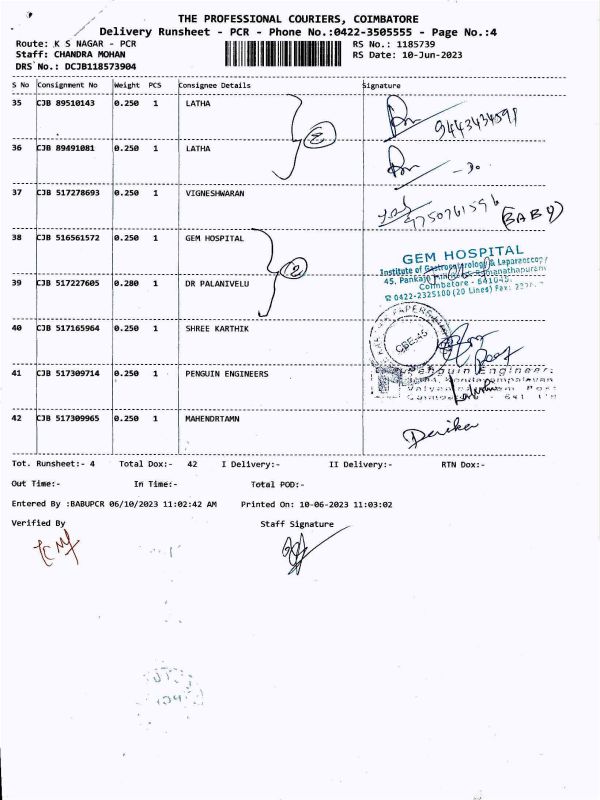 THE PROFESSIONAL COURIERS, COIMBATORE
Delivery Runsheet - PCR - Phone No.:0422-3505555 - Page No.:4
Route: K S NAGAR - PCR
RS No.: 1185739
Staff: CHANDRA MOHAN
RS Date: 10-Jun-2023
DRS No.: DCJB118573904
S No Consignment No Weight PCS Consignee Details Signature
35 CJB 89510143 0.250 1 LATHA
9443434591
2
36 CJB 89491081 0.250 1 LATHA
37 CJB 517278693 0.250 1 VIGNESHWARAN
9750761596
(BABU)
38 CJB 516561572 0.250 1 GEM HOSPITAL
GEM HOSPITAL
Institute of Gastroenterology & Laparoscopy
45, Pankaja Ramanathapuram
Coimbatore - 641045.
0422-2325100 (20 Lines) Fax:
2
39 CJB 517227605 0.280 1 DR PALANIVELU
PAPERS
CBE-45
40 CJB 517165964 0.250 1 SHREE KARTHIK
41 CJB 517309714 0.250 1 PENGUIN ENGINEERS
Penguin Engineers
42 CJB 517309965 0.250 1 MAHENDRTAMN
Tot. Runsheet:- 4 Total Dox:- 42 I Delivery:- II Delivery:- RTN Dox:-
Out Time:- In Time:- Total POD:-
Entered By :BABUPCR 06/10/2023 11:02:42 AM Printed On: 10-06-2023 11:03:02
Verified By Staff Signature